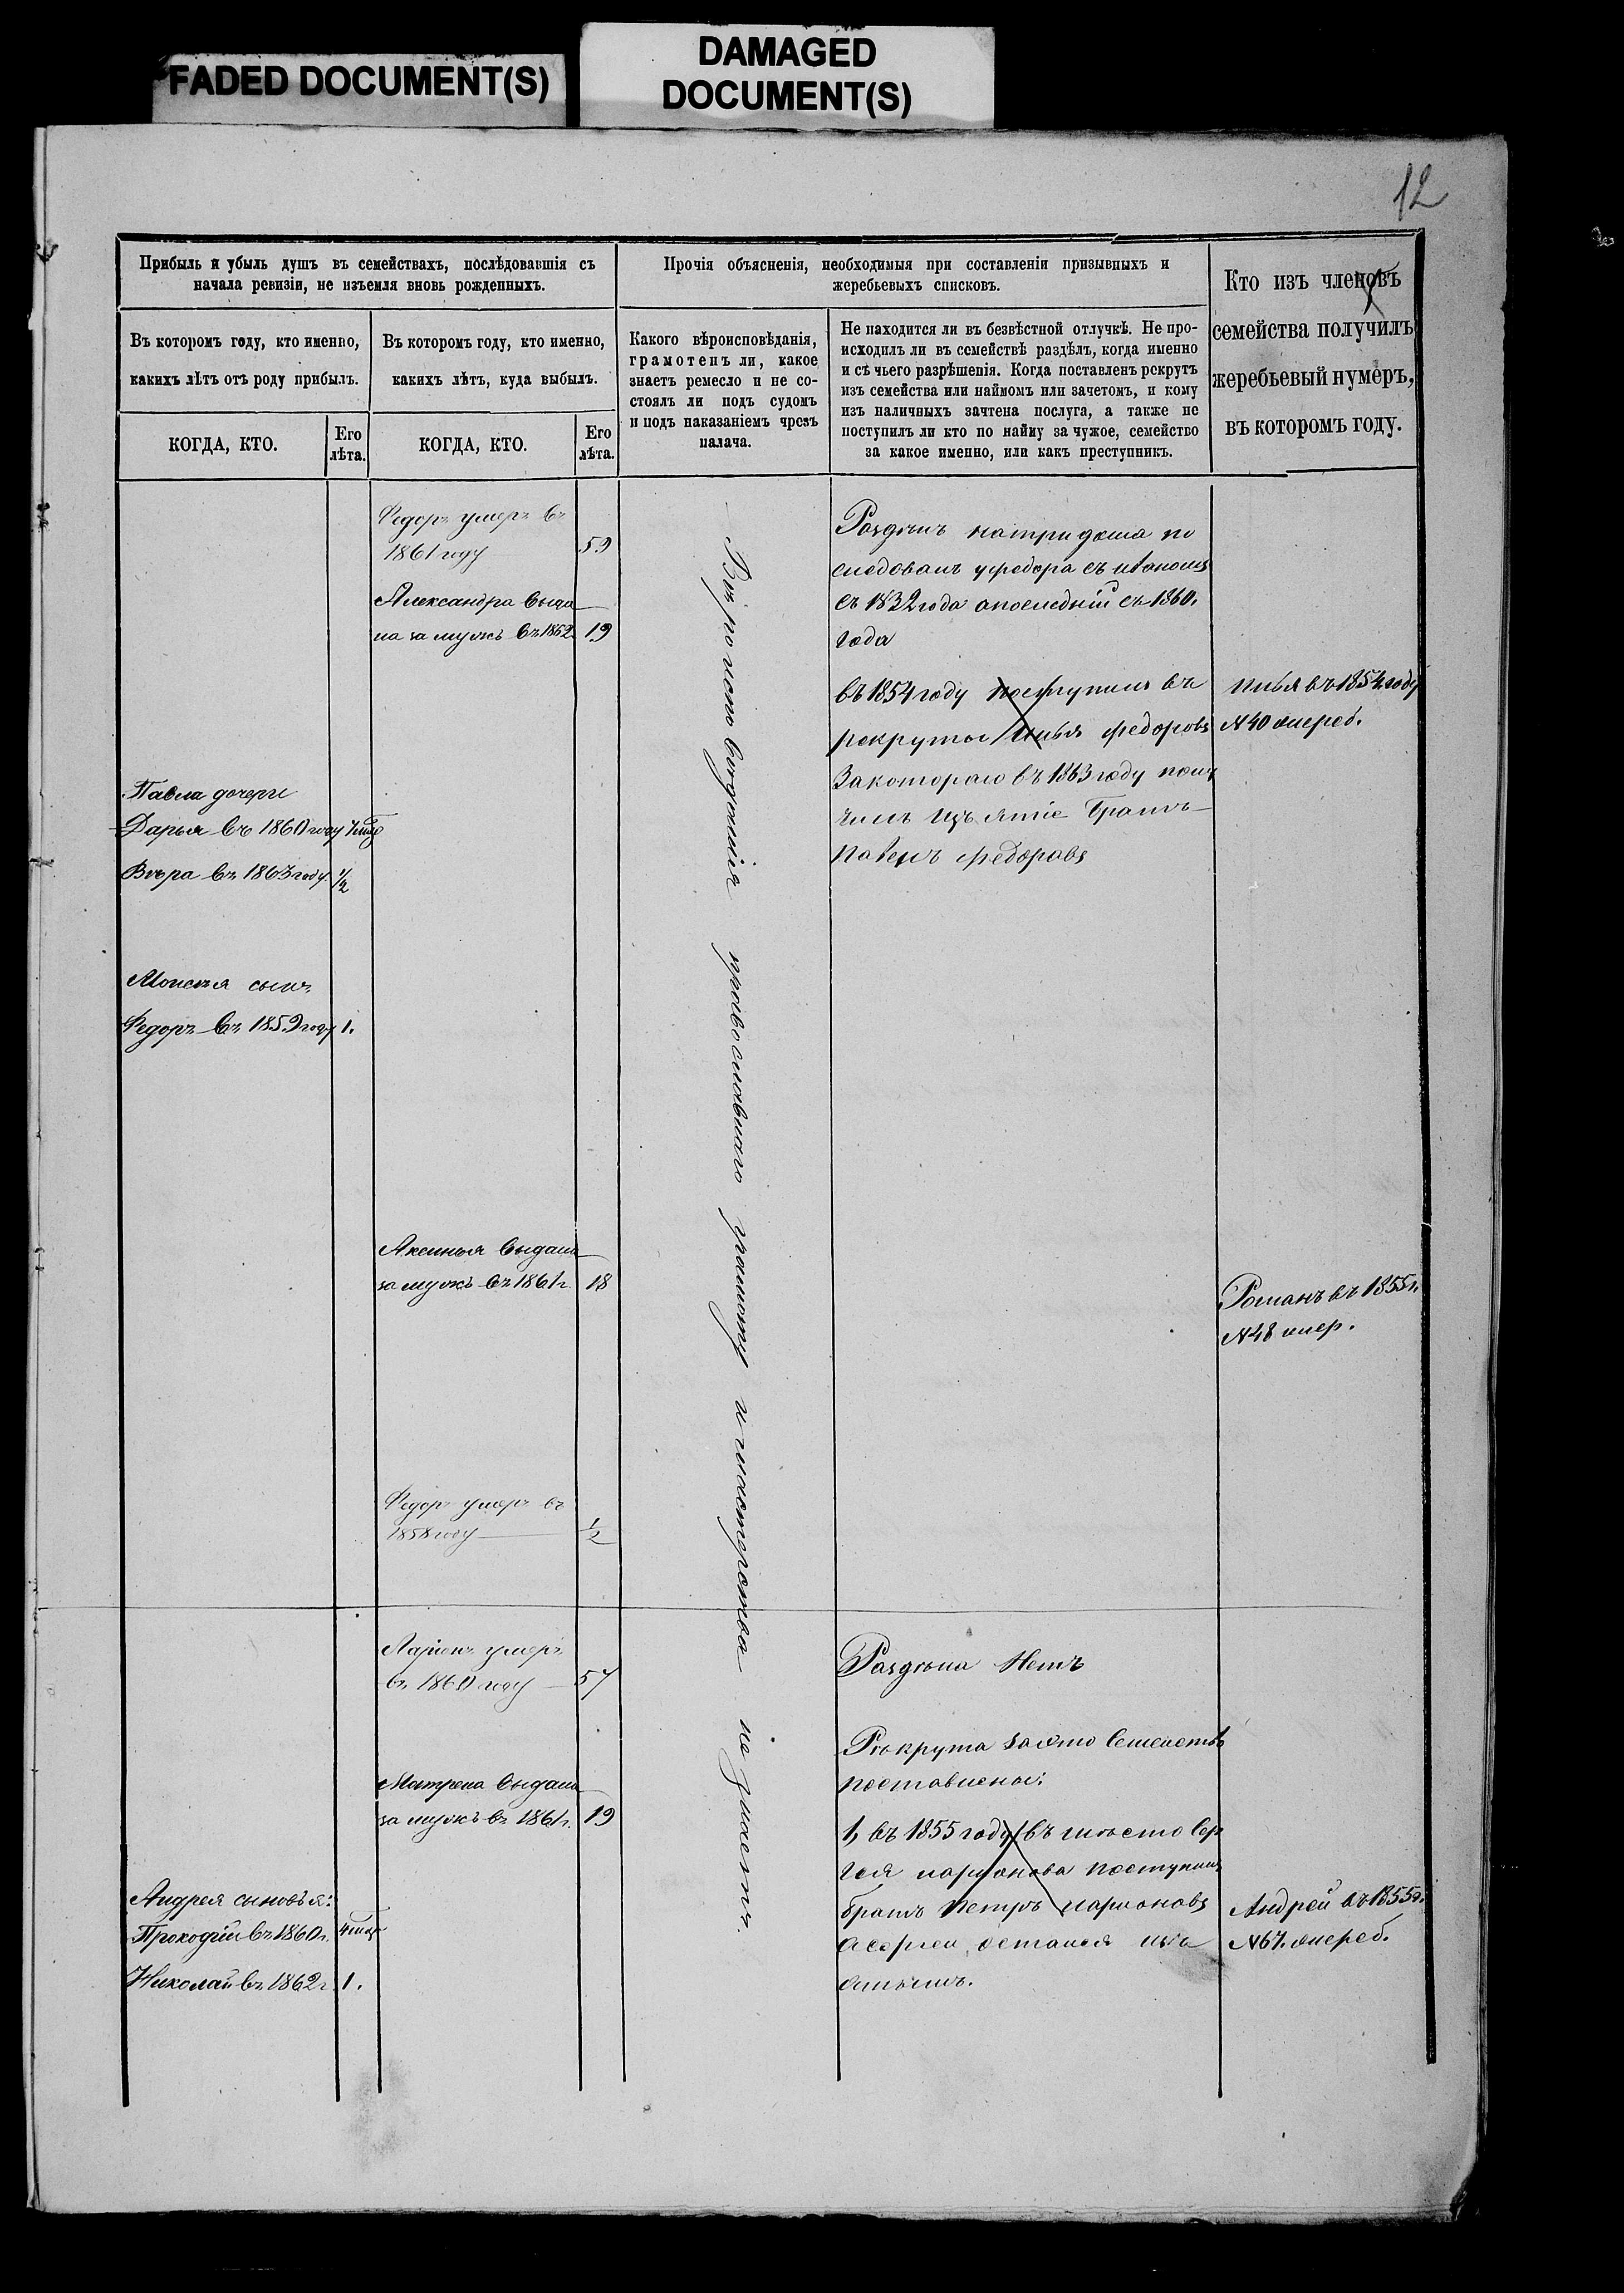 FADED DOCUMENT(S)
DAMAGED
DOCUMENT(S)
12
Прибыль и убыль душъ въ семействахъ, послѣдовавшія съ
начала ревизіи, не изъемля вновь рожденныхъ.
Въ которомъ году, кто именно,
какихъ лѣтъ отъ роду прибылъ.
КОГДА, КТО.
Его
лѣта.
Въ которомъ году, кто именно,
какихъ лѣтъ, куда выбылъ.
КОГДА, КТО.
Его
лѣта.
Прочія объясненія, необходимыя при составленіи призывныхъ и
жеребьевыхъ списковъ.
Какого вѣроисповѣданія,
грамотенъ ли, какое
знаетъ ремесло и не со-
стоялъ ли подъ судомъ
и подъ наказаніемъ чрезъ
палача.
Не находится ли въ безвѣстной отлучкѣ. Не про-
исходилъ ли въ семействѣ раздѣлъ, когда именно
и съ чьего разрѣшенія. Когда поставленъ рекрутъ
изъ семейства или наймомъ или зачетомъ, и кому
изъ наличныхъ зачтена послуга, а также не
поступилъ ли кто по найму за чужое, семейство
за какое именно, или какъ преступникъ.
Кто изъ членовъ
семейства получилъ
жеребьевый нумеръ,
въ которомъ году.
Павла дочери
Дарья въ 1860 году
Вѣра въ 1863 году 1/2
Моисея сынъ
Федоръ въ 1859 году 1.
Андрея сыновья:
Прокофій въ 1860 г.
Николай въ 1862 г 1.
Федоръ умеръ въ
1861 году 59
Александра выда
на за мужъ въ 1862 19
Аксинья выдана
за мужъ въ 1861 г 18
Федоръ умеръ въ
1858 году 1/2
Ларіонъ умеръ
въ 1860 году 57
Матрена выдана
за мужъ въ 1861 г. 19
православнаго грамоту и мастерства не знаетъ.
Раздѣлъ на три дома по
следовалъ у федора съ
съ 1832 года а последній съ 1860.
года
въ 1854 году поступилъ въ
рекруты Илья федоровъ
За котораго въ 1863 году полу
чилъ братъ
Павелъ федоровъ
Раздѣла Нетъ
Рекрута за это Семейство
поставлены:
1, въ 1855 году въ место Сер
гея ларіонова поступилъ
братъ Петръ ларіоновъ
а сергеи остался
Илья въ 1854 году
N 40 жереб.
Романъ въ 1855 г.
N 48 жер.
Андрей въ 1855 г.
N 67. жереб.